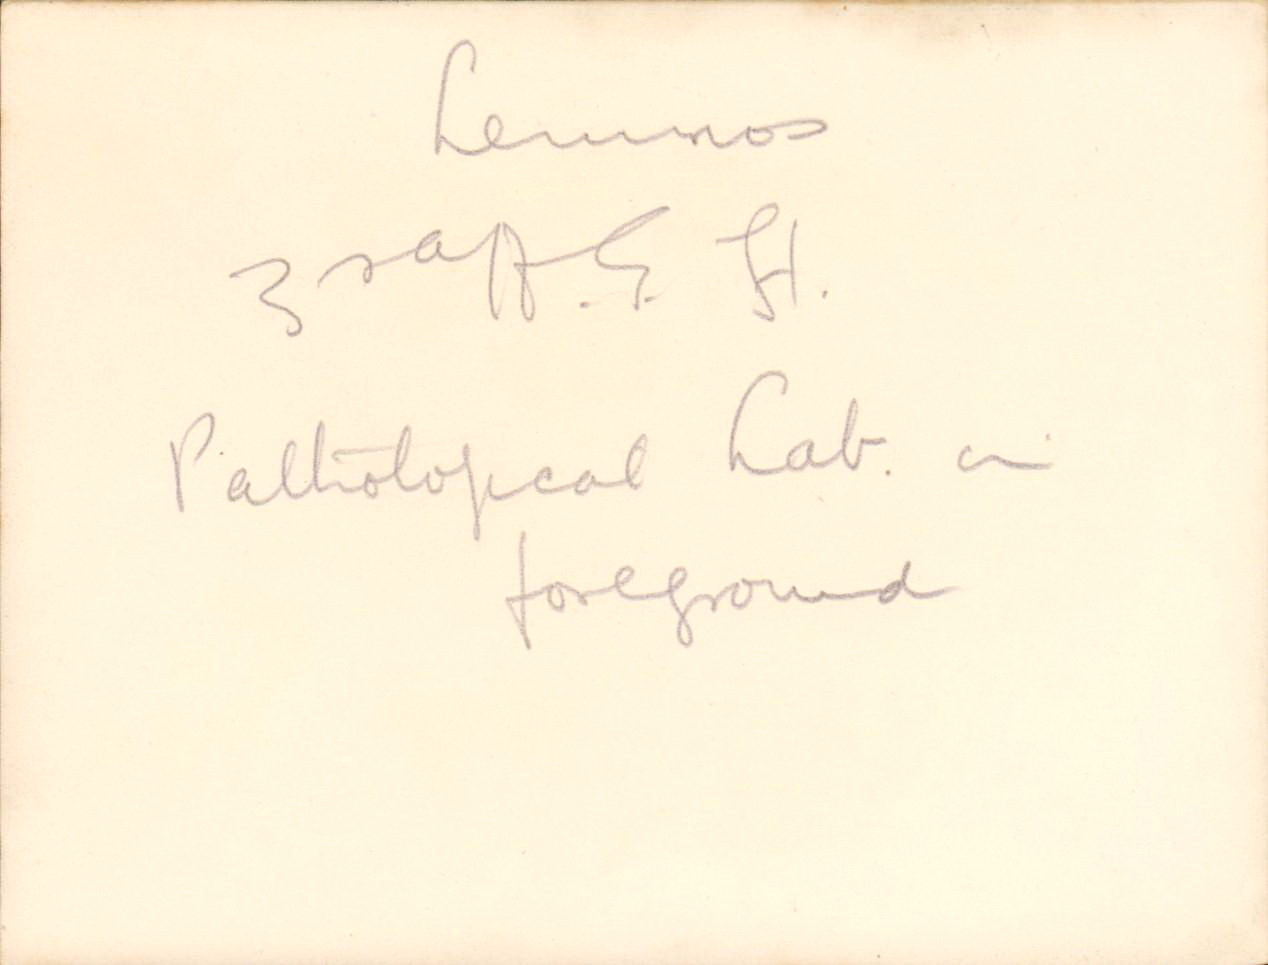 Lemnos
3rd A.G. H.
Pathological Lab. in
foreground